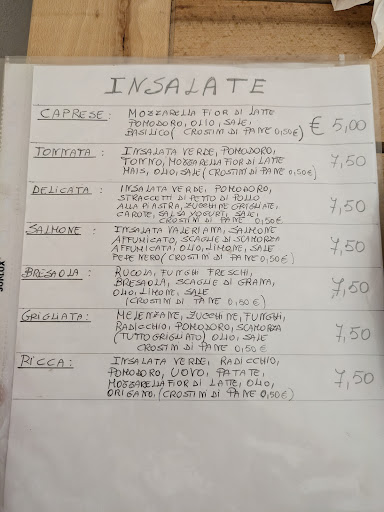 INSALATE
CAPRESE: MOZZARELLA FIOR DI LATTE
POMODORO, OLIO, SALE,
BASILICO (CROSTIM DI PANE 0,50€) € 5,00
TONNATA: INSALATA VERDE, POMODORO,
TONNO, MOZZARELLA FIOR DI LATTE
MAIS, OLIO, SALE (CROSTIM DI PANE 0,50€) 7,50
DELICATA: INSALATA VERDE, POMODORO,
STRACCETTI DI PETTO DI POLLO
ALLA PIASTRA, ZUCCHINE GRIGLIATE,
CAROTE, SALSA YOGURT, SALE,
CROSTIM DI PANE 0,50€ 7,50
SALMONE: INSALATA VALERIANA, SALMONE
AFFUMICATO, SCAGLIE DI SCAMORZA
AFFUMICATA, OLIO, LIMONE, SALE
PEPE NERO (CROSTIM DI PANE 0,50€) 7,50
BRESAOLA: RUCOLA, FUNGHI FRESCHI,
BRESAOLA, SCAGLIE DI GRANA,
OLIO, LIMONE, SALE
(CROSTIM DI PANE 0,50€) 7,50
GRIGLIATA: MELENZANE, ZUCCHINE, FUNGHI,
RADICCHIO, POMODORO, SCAMORZA
(TUTTO GRIGLIATO) OLIO, SALE
CROSTIM DI PANE 0,50€ 7,50
RICCA: INSALATA VERDE, RADICCHIO,
POMODORO, UOVO, PATATE,
MOZZARELLA FIOR DI LATTE, OLIO,
ORIGANO. (CROSTIM DI PANE 0,50€) 7,50